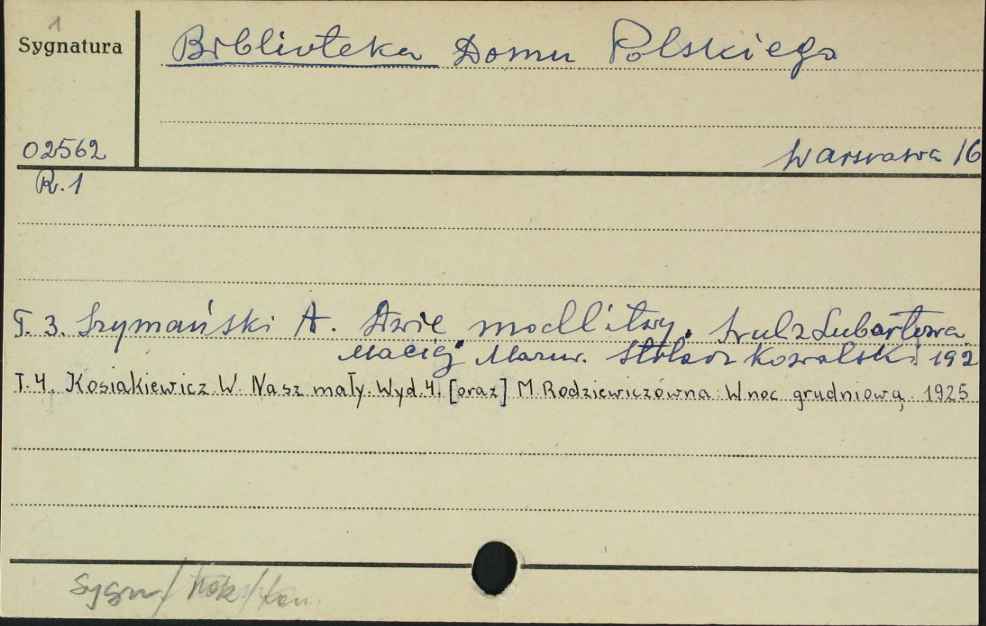 1
Sygnatura
Biblioteka Domu Polskiego
02562
Warszawa 16
R.1
T. 3. Szymański A. Dwie modlitwy. Srul z Lubartowa.
Maciej Mazur. Stolarz Kowalski. 192
T.4. Kosiakiewicz W. Nasz mały. Wyd.4. [oraz] M. Rodziewiczówna: W noc grudniową 1925
Sygn/